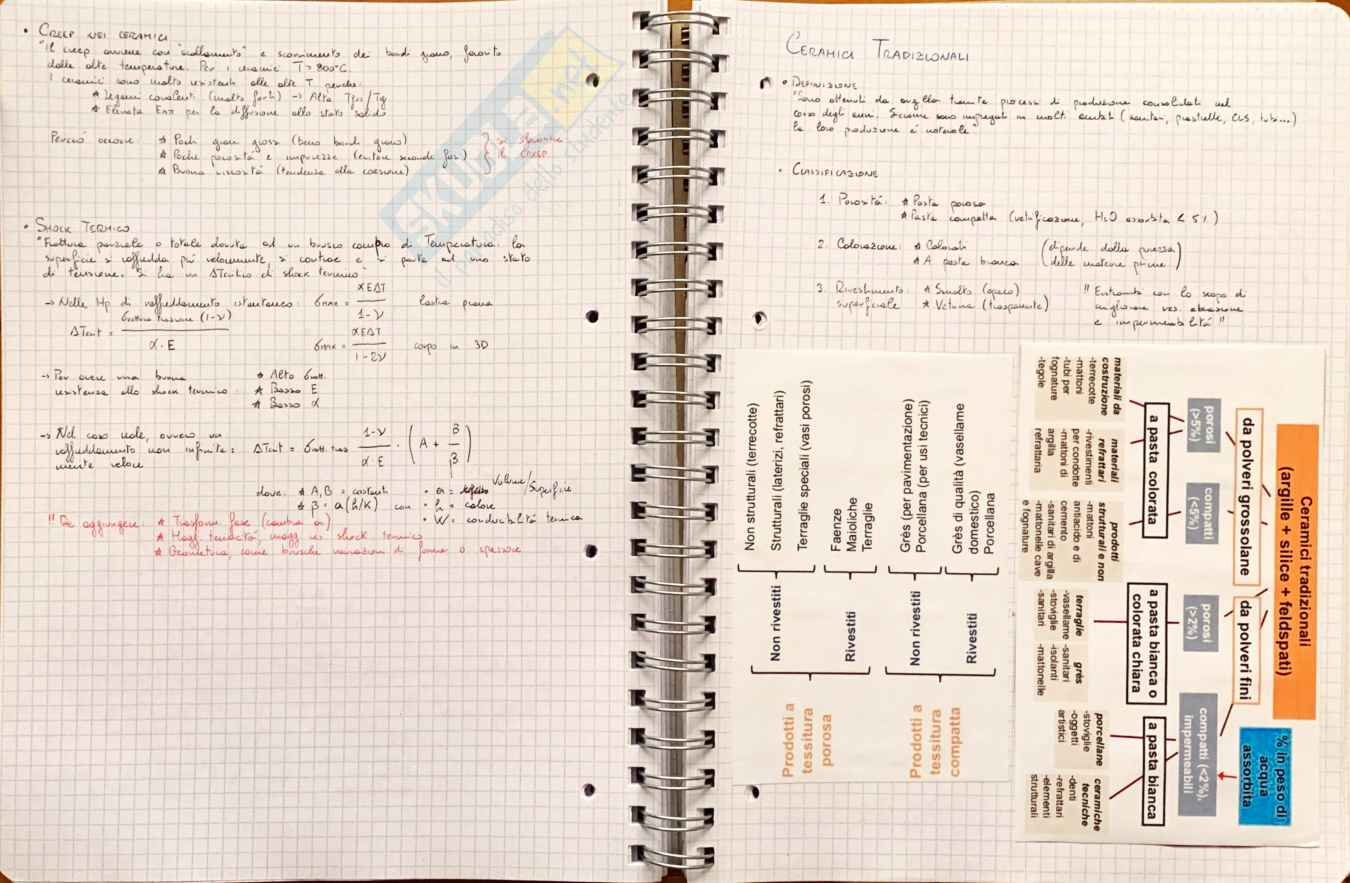 • CREEP NEI CERAMICI
"Il creep avviene con "scollamento" e scorrimento dei bordi grano, favorito
dalle alte temperature. Per i ceramici T > 800°C.
I ceramici sono molto resistenti alle alte T perché:
* Legami covalenti (molto forti) → Alta Tfus/Tg
* Elevata Eatt per la diffusione allo stato solido
Perciò occorre * Pochi grani grossi (meno bordi grano)
* Poche porosità e impurezze (evitare seconde fasi)
* Buona viscosità (tendenza alla coesione)
si sfavorisce
il creep
• SHOCK TERMICO
"Frattura parziale o totale dovuta ad un brusco cambio di Temperatura: la
superficie si raffredda più velocemente, si contrae e si porta ad uno stato
di tensione. Si ha un ΔTcritico di shock termico"
→ Nelle Hp di raffreddamento istantaneo: σmax = αEΔT / 1-ν lastra piana
ΔTcrit = σfrattura trazione (1-ν) / α·E
σmax = αEΔT / 1-2ν corpo in 3D
→ Per avere una buona * Alto σfratt.
resistenza allo shock termico: * Basso E
* Basso α
→ Nel caso reale, ovvero un
raffreddamento non infinita- ΔTcrit = σfratt. traz 1-ν / α·E · (A + B / β)
mente veloce
dove: * A, B = costanti • a = Volume/Superficie
* β = a(h/K) con • h = calore
• K = conducibilità termica
"Da aggiungere: * Trasform fase (contra a)
* Magg tenacità, magg res shock termico
* Geometria, come brusche variazioni di forma o spessore
SKUOLA.net
il paradiso dello studente
CERAMICI TRADIZIONALI
• DEFINIZIONE
"Sono ottenuti da argilla tramite processi di produzione consolidati nel
corso degli anni. Siccome sono impiegati in molti ambiti (sanitari, piastrelle, CLS, tubi...)
la loro produzione è notevole.
• CLASSIFICAZIONE
1. Porosità: * Pasta porosa
* Pasta compatta (vetrificazione, H2O assorbita < 5%)
2. Colorazione: * Colorati (dipende dalla purezza
* A pasta bianca delle materie prime)
3. Rivestimento: * Smalto (opaco) "Entrambi con lo scopo di
superficiale * Vetrina (trasparente) migliorare res. abrasione
e impermeabilità"
Prodotti a
tessitura
porosa
Non rivestiti
Non strutturali (terrecotte)
Strutturali (laterizi, refrattari)
Terraglie speciali (vasi porosi)
Rivestiti
Faenze
Maioliche
Terraglie
Prodotti a
tessitura
compatta
Non rivestiti
Grès (per pavimentazione)
Porcellana (per usi tecnici)
Rivestiti
Grès di qualità (vasellame
domestico)
Porcellana
Ceramici tradizionali
(argille + silice + feldspati)
% in peso di
acqua
assorbita
da polveri grossolane
da polveri fini
porosi
(>5%)
compatti
(<5%)
porosi
(>2%)
compatti (<2%),
impermeabili
a pasta colorata
a pasta bianca o
colorata chiara
a pasta bianca
materiali da
costruzione
-terrecotte
-mattoni
-tubi per
fognature
-tegole
materiali
refrattari
-rivestimenti
per condotte
-mattoni di
argilla
refrattaria
prodotti
strutturali e non
-mattoni
antiacido e di
cemento
-sanitari di argilla
-mattonelle cave
e fognature
terraglie
-vasellame
-stoviglie
-sanitari
grès
-sanitari
-isolanti
-mattonelle
porcellane
-stoviglie
-oggetti
artistici
ceramiche
tecniche
-denti
-refrattari
-elementi
strutturali